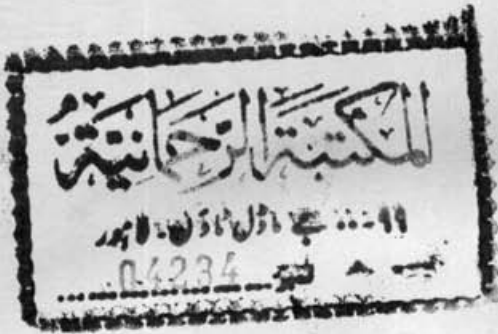 المكتبة الرحمانية
۹۹... جے ماڈل ٹاؤن، لاہور
نمبر ....04234....